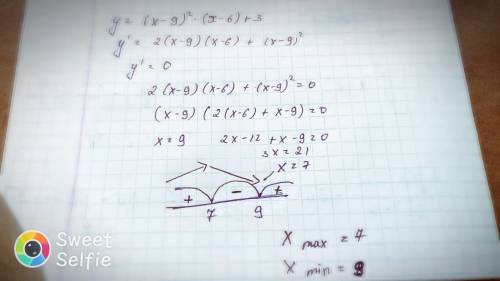 y = (x-9)² · (x-6)+3
y' = 2(x-9)(x-6) + (x-9)²
y' = 0
2(x-9)(x-6) + (x-9)² = 0
(x-9)(2(x-6) + x-9) = 0
x = 9 2x-12 + x-9 = 0
3x = 21
x = 7
+ - +
7 9
X max = 7
X min = 9
Sweet
Selfie